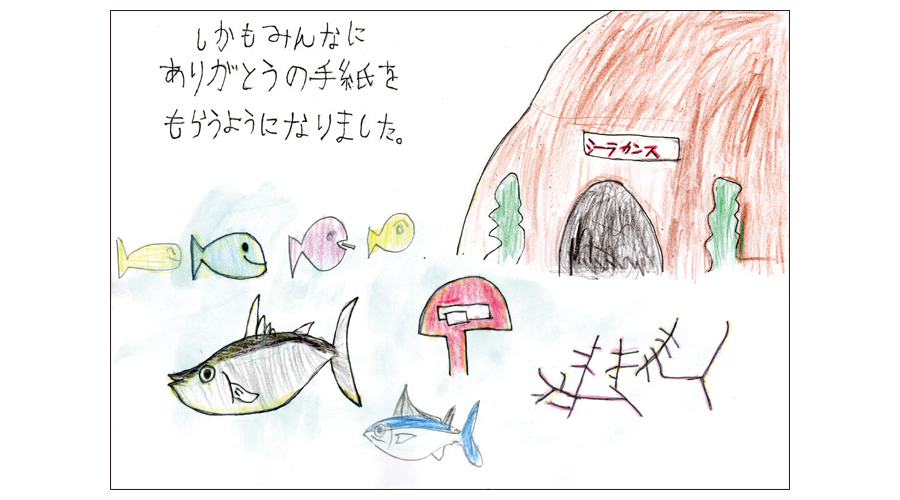 しかもみんなに
ありがとうの手紙を
もらうようになりました。
シーラカンス